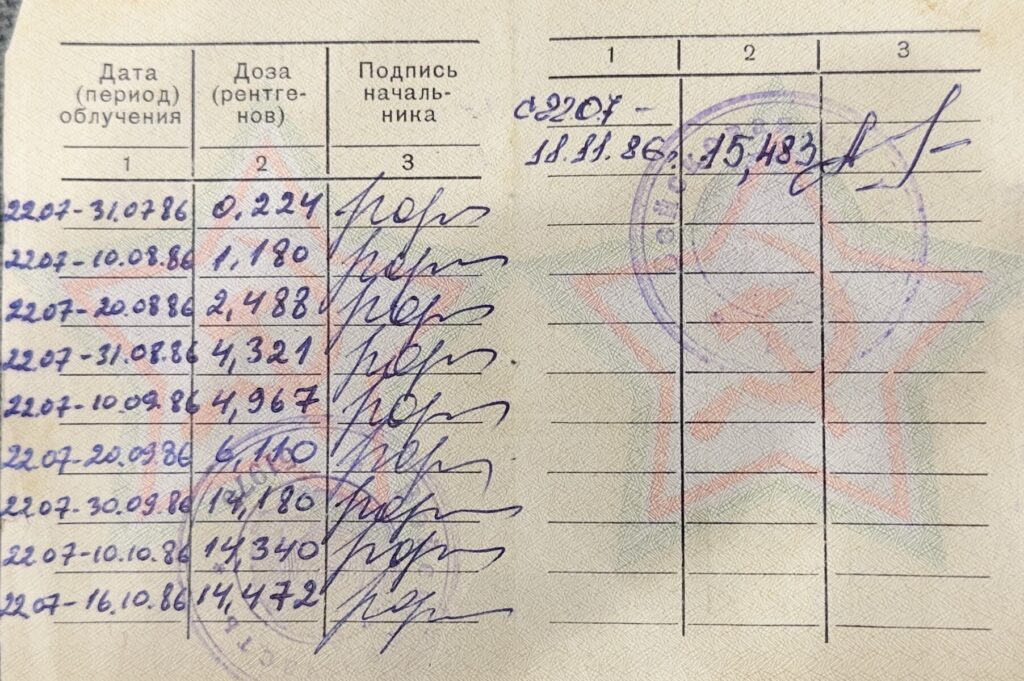 Дата (период) облучения | Доза (рентге-нов) | Подпись началь-ника
1 | 2 | 3
22.07-31.07.86 0,224
22.07-10.08.86 1,180
22.07-20.08.86 2,488
22.07-31.08.86 4,321
22.07-10.09.86 4,967
22.07-20.09.86 6,110
22.07-30.09.86 14,180
22.07-10.10.86 14,340
22.07-16.10.86 14,472
1 2 3
с 22.07 -
18.11.86. 15,483